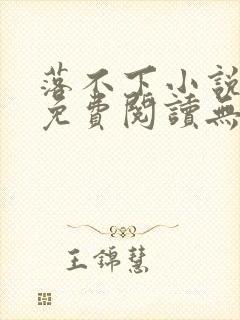 落不下小說
免費閱讀無
王錦慧